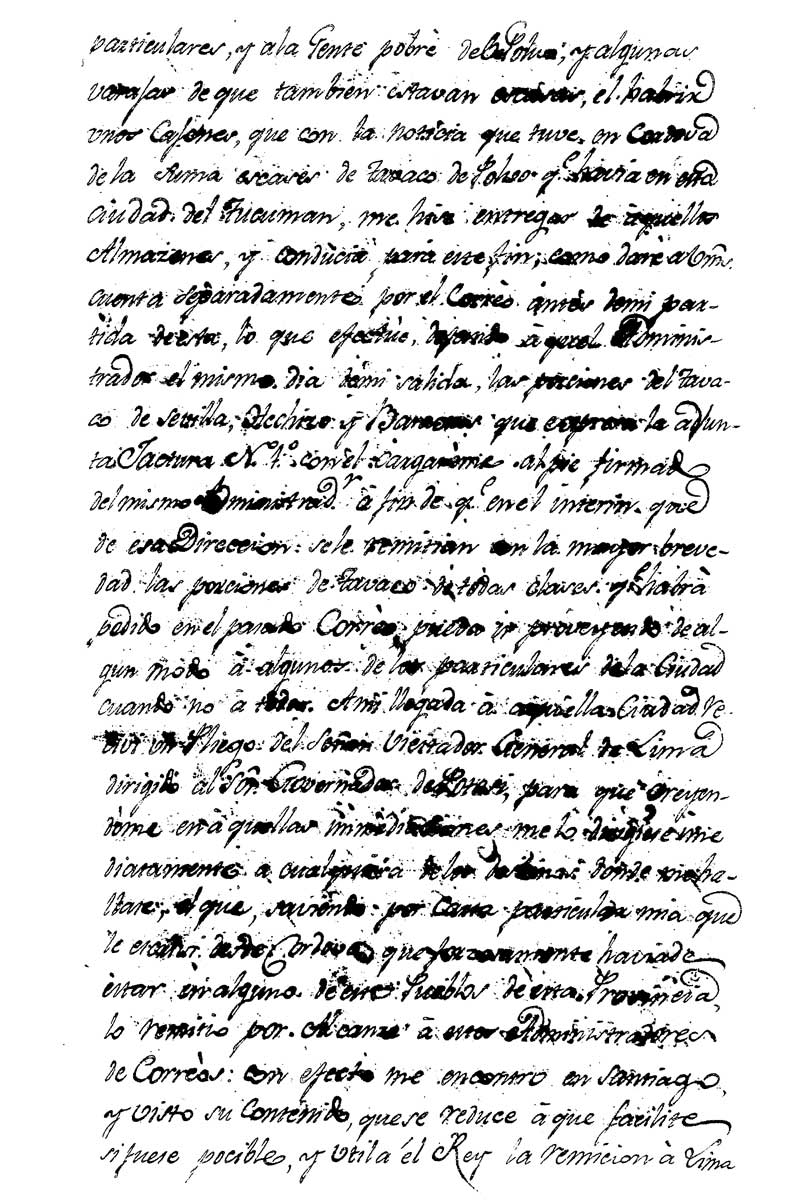 particulares, y a la Gente pobre del Polvo; y algunas
de que tambien estavan escasas, el habrir
vnos Cajones, que con la noticia que tuve en Cordova
de la suma escases de Tavaco de Polvo q.e havia en esta
Ciudad del Tucuman, me hice entregar de aquellos
Almazenes, y conducia para este fin, como daré a Vms.
cuenta separadamente por el Corrèo àntes de mi par-
tida de esta, lo que efectùe, dejando à quel Adminis-
trador el mismo dia de mi salida, las porciones del Tava-
co de Sevilla, y que expresa la adjun-
ta Factura N.º 1.º con el Cargareme al pie firmado
del mismo Administrad.r à fin de q.e en el interin que
de esa Direccion se le remitian con la mayor breve-
dad las porciones de Tavaco de tòdas clases q.e habrà
pedido en el pasado Corrèo, pueda ir proveyendo de al-
gun modo à algunos de los particulares de la Ciudad
cuando no à todos. A mi llegada à aquella Ciudad re-
civi un Pliego del Señor Visitador General de Lima
dirigido al Sõr. Governador de Potosi, para que creyen-
dome en à quellas immediaciones me lo dirigiese ime
diatamente a cualquiera de los destinos donde me ha-
llase, el que, saviendo por Carta particular mia que
le escrivi desde Cordova, que forzosamente havia de
estar èn alguno de este Pueblos de esta Provincia,
lo remitio por Alcanze à estos Administradores
de Corrèos: con efecto me encontro en Santiago,
y visto su Contenido, que se reduce à que facilite
si fuese pocible, y util a èl Rey la remicion à Lima